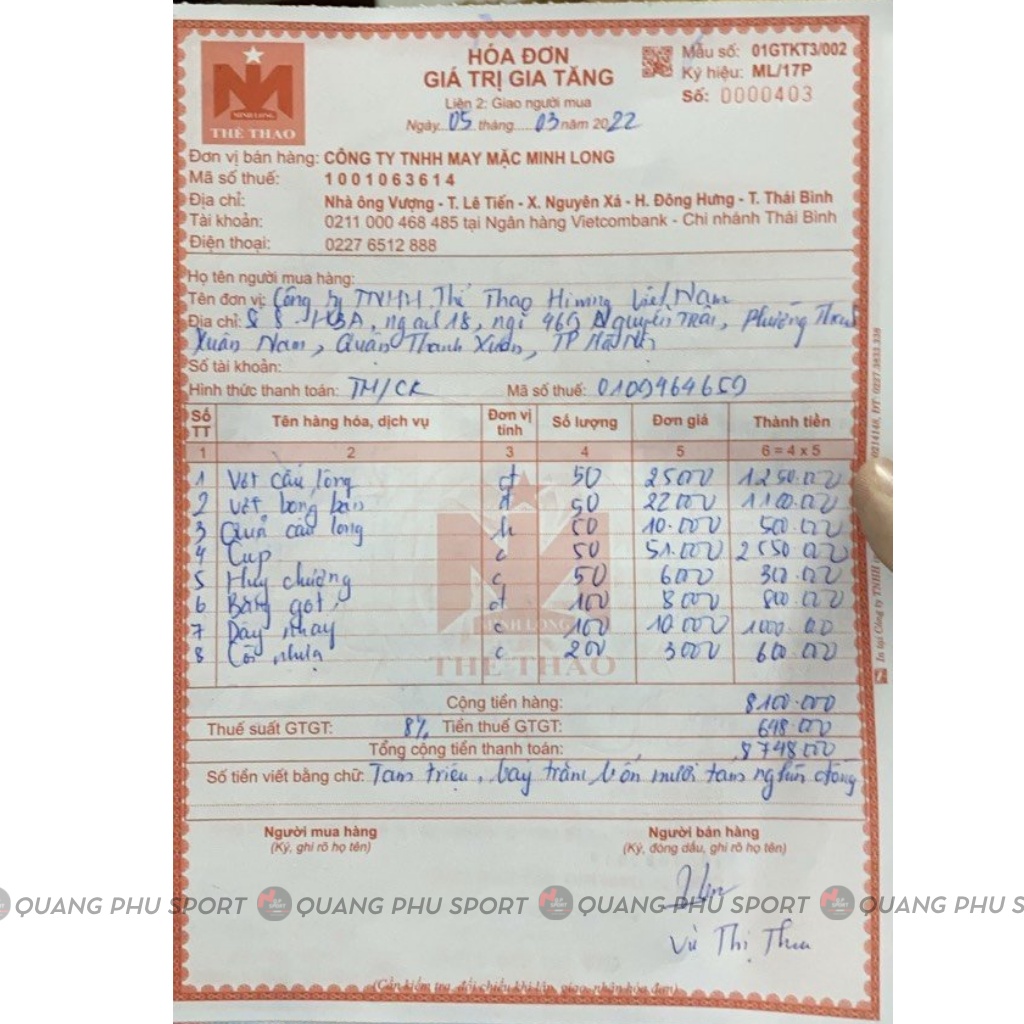 HÓA ĐƠN
GIÁ TRỊ GIA TĂNG
Liên 2: Giao người mua
Ngày 05 tháng 03 năm 2022
Mẫu số: 01GTKT3/002
Ký hiệu: ML/17P
Số: 0000403
MINH LONG
THỂ THAO
Đơn vị bán hàng: CÔNG TY TNHH MAY MẶC MINH LONG
Mã số thuế: 1001063614
Địa chỉ: Nhà ông Vượng - T. Lê Tiến - X. Nguyên Xá - H. Đông Hưng - T. Thái Bình
Tài khoản: 0211 000 468 485 tại Ngân hàng Vietcombank - Chi nhánh Thái Bình
Điện thoại: 0227 6512 888
Họ tên người mua hàng:
Tên đơn vị: Công ty TNHH Thể Thao Himing Việt Nam
Địa chỉ: Số 8 - H3A, ngách 18, ngõ 460 Nguyễn Trãi, Phường Thanh
Xuân Nam, Quận Thanh Xuân, TP Hà Nội
Số tài khoản:
Hình thức thanh toán: TM/CK Mã số thuế: 0109464659
Số TT Tên hàng hóa, dịch vụ Đơn vị tính Số lượng Đơn giá Thành tiền
1 2 3 4 5 6 = 4 x 5
1 Vợt cầu lông 50 25000 1250.000
2 Vợt bóng bàn 50 22000 1100.000
3 Quả cầu lông 50 10.000 500.000
4 Cup c 50 51.000 2550 000
5 Huy chương c 50 6000 300.000
6 Băng gót 100 8000 800.000
7 Dây nhảy c 100 10000 1000.000
8 Còi nhựa c 200 3000 600.000
MINH LONG
THỂ THAO
Cộng tiền hàng: 8100.000
Thuế suất GTGT: 8% Tiền thuế GTGT: 648.000
Tổng cộng tiền thanh toán: 8748000
Số tiền viết bằng chữ: Tám triệu, bảy trăm bốn mươi tám nghìn đồng
Người mua hàng
(Ký, ghi rõ họ tên)
Người bán hàng
(Ký, đóng dấu, ghi rõ họ tên)
QUANG PHU SPORT QUANG PHU SPORT QUANG PHU SPORT QUANG PHU S
Vũ Thị Thu
(Cần kiểm tra, đối chiếu khi lập, giao, nhận hóa đơn)